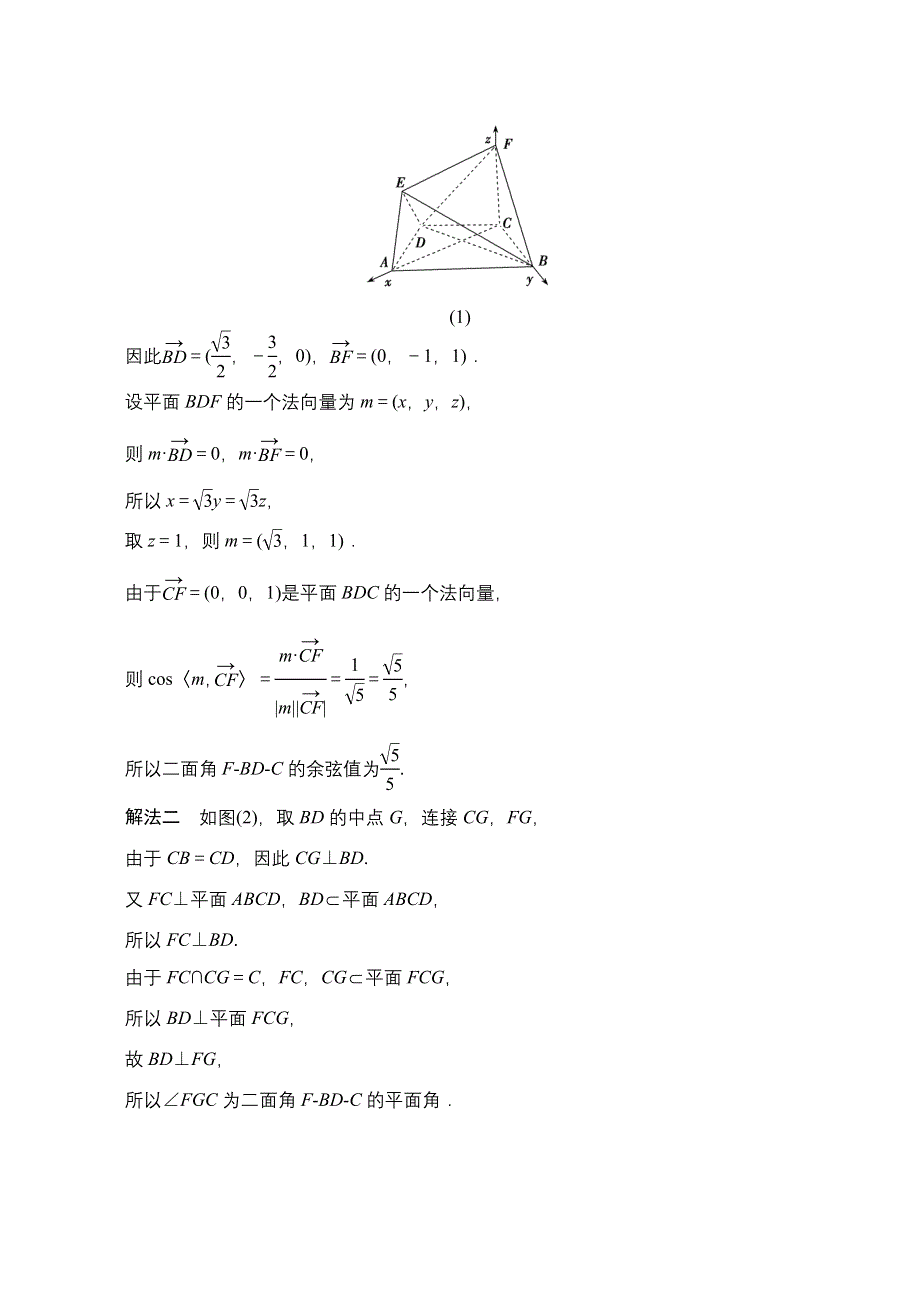 z F
E
C
D
A B
x y
(1)
因此$\overrightarrow{BD}$=($\frac{\sqrt{3}}{2}$，-$\frac{3}{2}$，0)，$\overrightarrow{BF}$=(0，-1，1)．
设平面 BDF 的一个法向量为 m=(x，y，z)，
则 m·$\overrightarrow{BD}$=0，m·$\overrightarrow{BF}$=0，
所以 x=$\sqrt{3}$y=$\sqrt{3}$z，
取 z=1，则 m=($\sqrt{3}$，1，1)．
由于$\overrightarrow{CF}$=(0，0，1)是平面 BDC 的一个法向量，
则 cos〈m，$\overrightarrow{CF}$〉=$\frac{m·\overrightarrow{CF}}{|m||\overrightarrow{CF}|}$=$\frac{1}{\sqrt{5}}$=$\frac{\sqrt{5}}{5}$，
所以二面角 F-BD-C 的余弦值为$\frac{\sqrt{5}}{5}$.
解法二　如图(2)，取 BD 的中点 G，连接 CG，FG，
由于 CB=CD，因此 CG⊥BD.
又 FC⊥平面 ABCD，BD⊂平面 ABCD，
所以 FC⊥BD.
由于 FC∩CG=C，FC，CG⊂平面 FCG，
所以 BD⊥平面 FCG，
故 BD⊥FG，
所以∠FGC 为二面角 F-BD-C 的平面角．